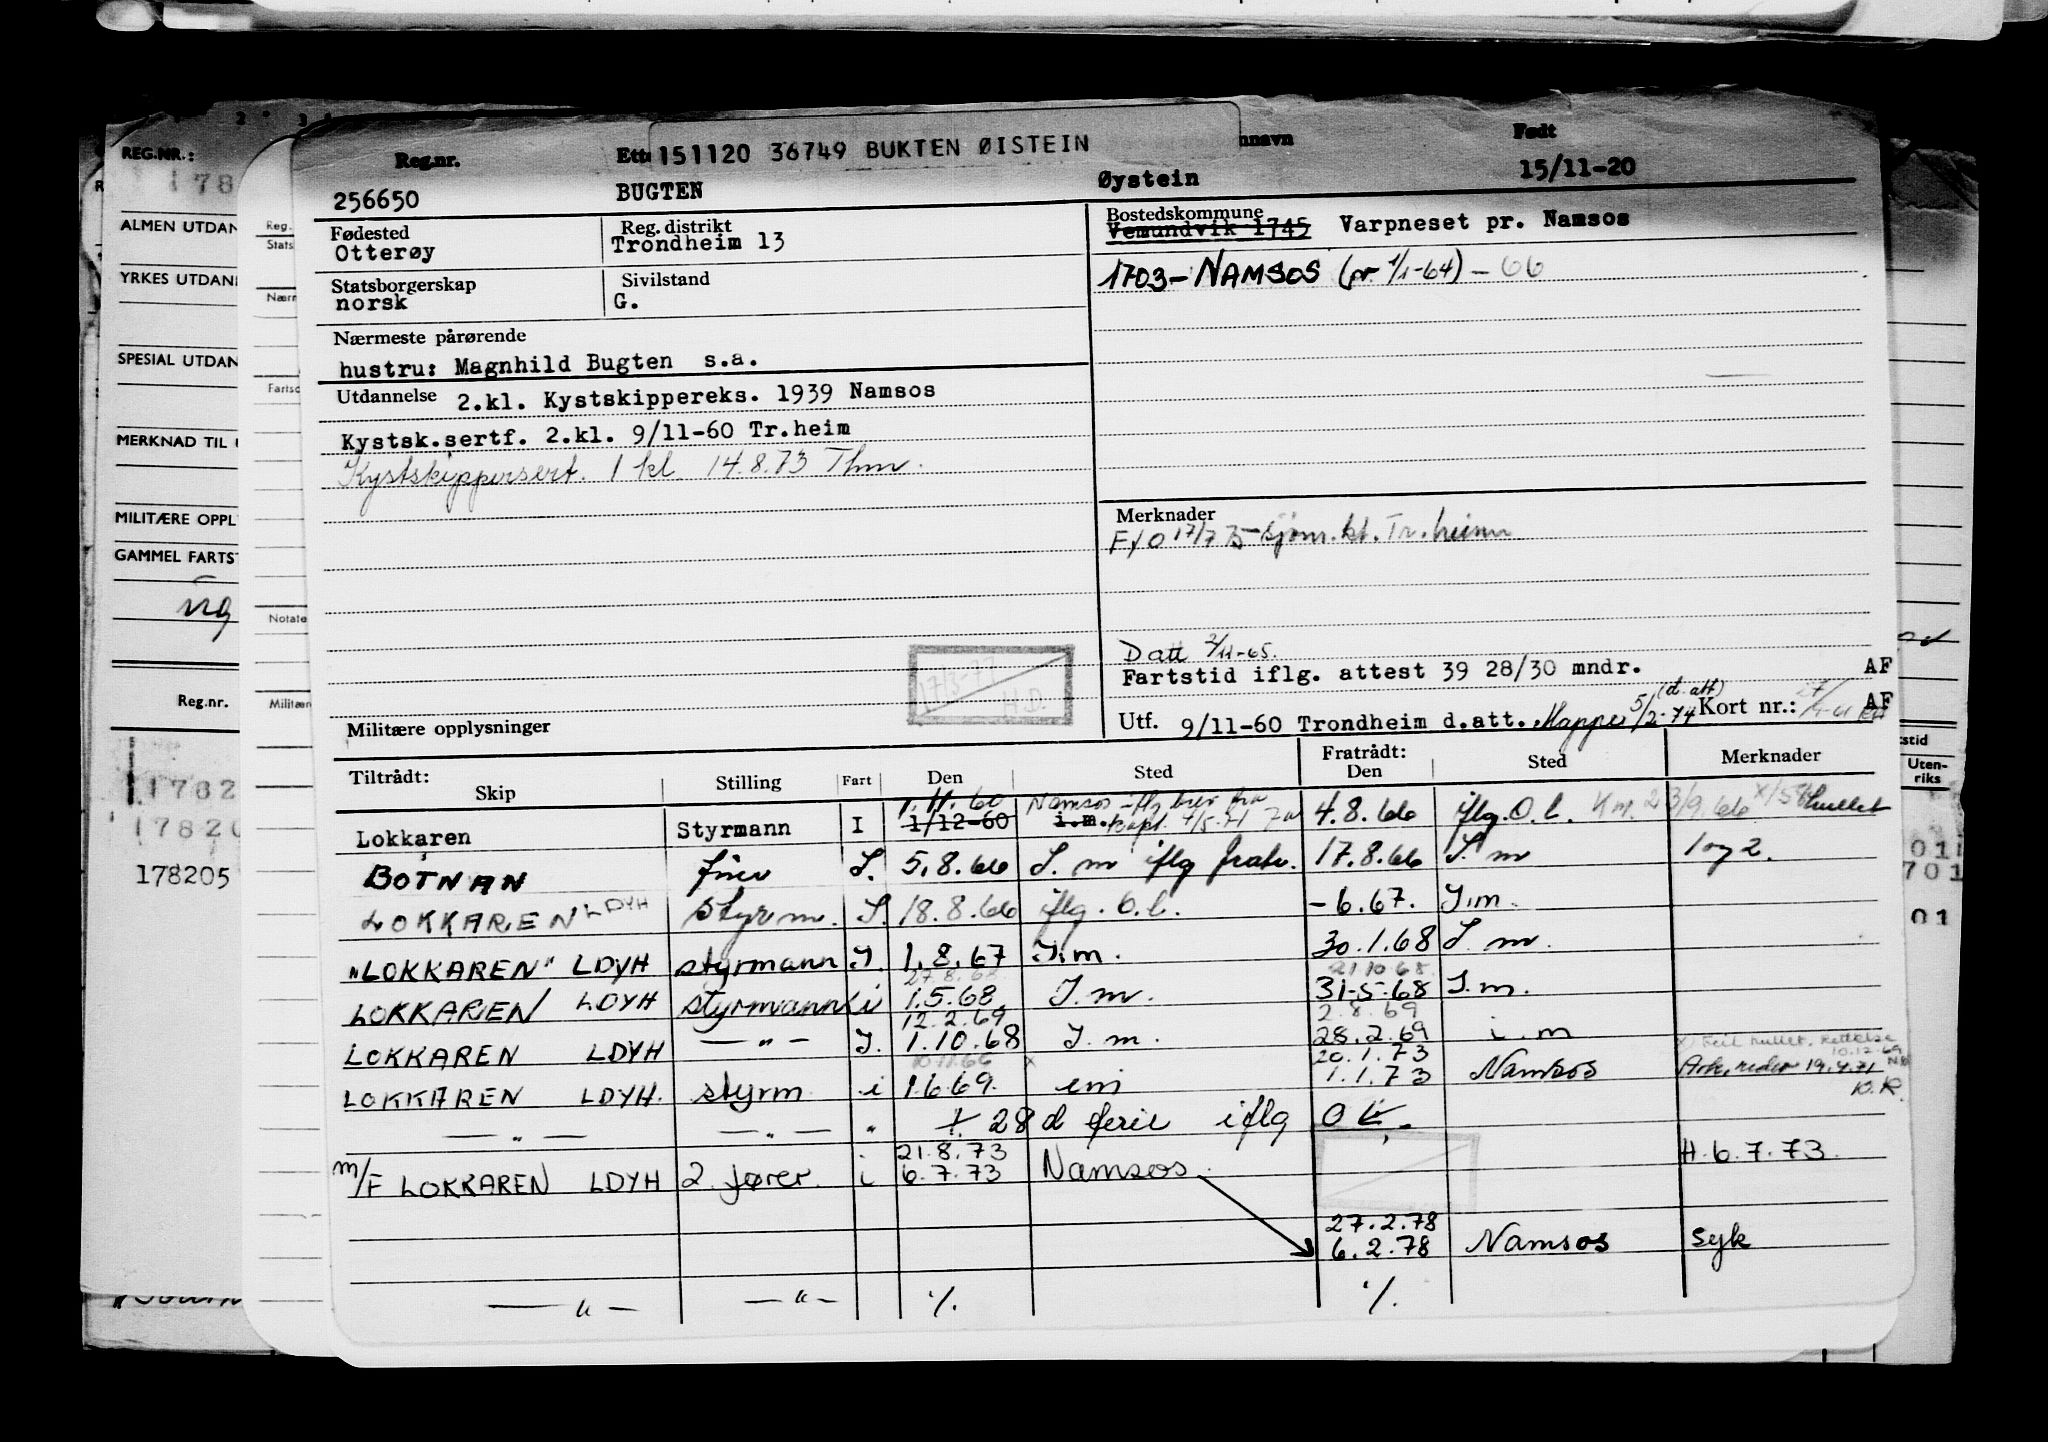 151120 36749 BUKTEN ØISTEIN
Reg.nr. Ett nnavn Født
256650 BUGTEN Øystein 15/11-20
Fødested Reg. distrikt Bostedskommune
Otterøy Trondheim 13 Vemundvik 1745 Varpneset pr. Namsos
Statsborgerskap Sivilstand 1703-NAMSOS (pr 1/1-64) - 66
norsk G.
Nærmeste pårørende
hustru: Magnhild Bugten s.a.
Utdannelse 2.kl. Kystskippereks. 1939 Namsos
Kystsk.sertf. 2.kl. 9/11-60 Tr.heim
Kystskippersert. 1 kl. 14.8.73 Thm.
Merknader
17/7 75 sjøm.kt. Tr.heim
D att 2/11-65.
Fartstid iflg. attest 39 28/30 mndr. AF
17/3-77 H.D.
Militære opplysninger
Utf. 9/11-60 Trondheim d.att. Mapper 5/2-74 (d.att) Kort nr.: AF
Tiltrådt: Fratrådt:
Skip Stilling Fart Den Sted Den Sted Merknader
Lokkaren Styrmann I 1.11.60 1/12-60 Namsos iflg brev fra i.m. kapt. 4/5.71 4.8.66 iflg. O.b. Km. 23/9.66 hullet
BOTNAN fører I. 5.8.66 I.m iflg fratr. 17.8.66 I.m 1 og 2.
LOKKAREN LDYH styrm. I. 18.8.66 iflg. O.b. -6.67. I.m.
"LOKKAREN" LDYH styrmann I. 1.8.67 I.m. 30.1.68 I.m.
27.8.68 21.10.68
LOKKAREN LDYH styrmann i 1.5.68 I.m. 31-5-68 I.m.
12.2.69 2.8.69
LOKKAREN LDYH — " — I. 1.10.68 I.m. 28.2.69 i.m
x) Feil hullet, rettelse 10.12.69
20.1.73
LOKKAREN LDYH. styrm i 1.6.69. x im 1.1.73 Namsos 19.4.71
— " — — " — " + 28 d ferie iflg O b.
21.8.73
m/F LOKKAREN LDYH 2. fører. i 6.7.73 Namsos. H. 6.7.73.
27.2.78
6.2.78 Namsos Syk
— " — — " — ·/. ·/.
REG.NR.:
178
ALMEN UTDAN
YRKES UTDAN
SPESIAL UTDAN
MERKNAD TIL
MILITÆRE OPPL
GAMMEL FARTST
Reg.nr.
11782
17820
178205
Reg.
Stats
Nærm
Fartsc
Notate
Militær
stid
Uten-
riks
01
701
01